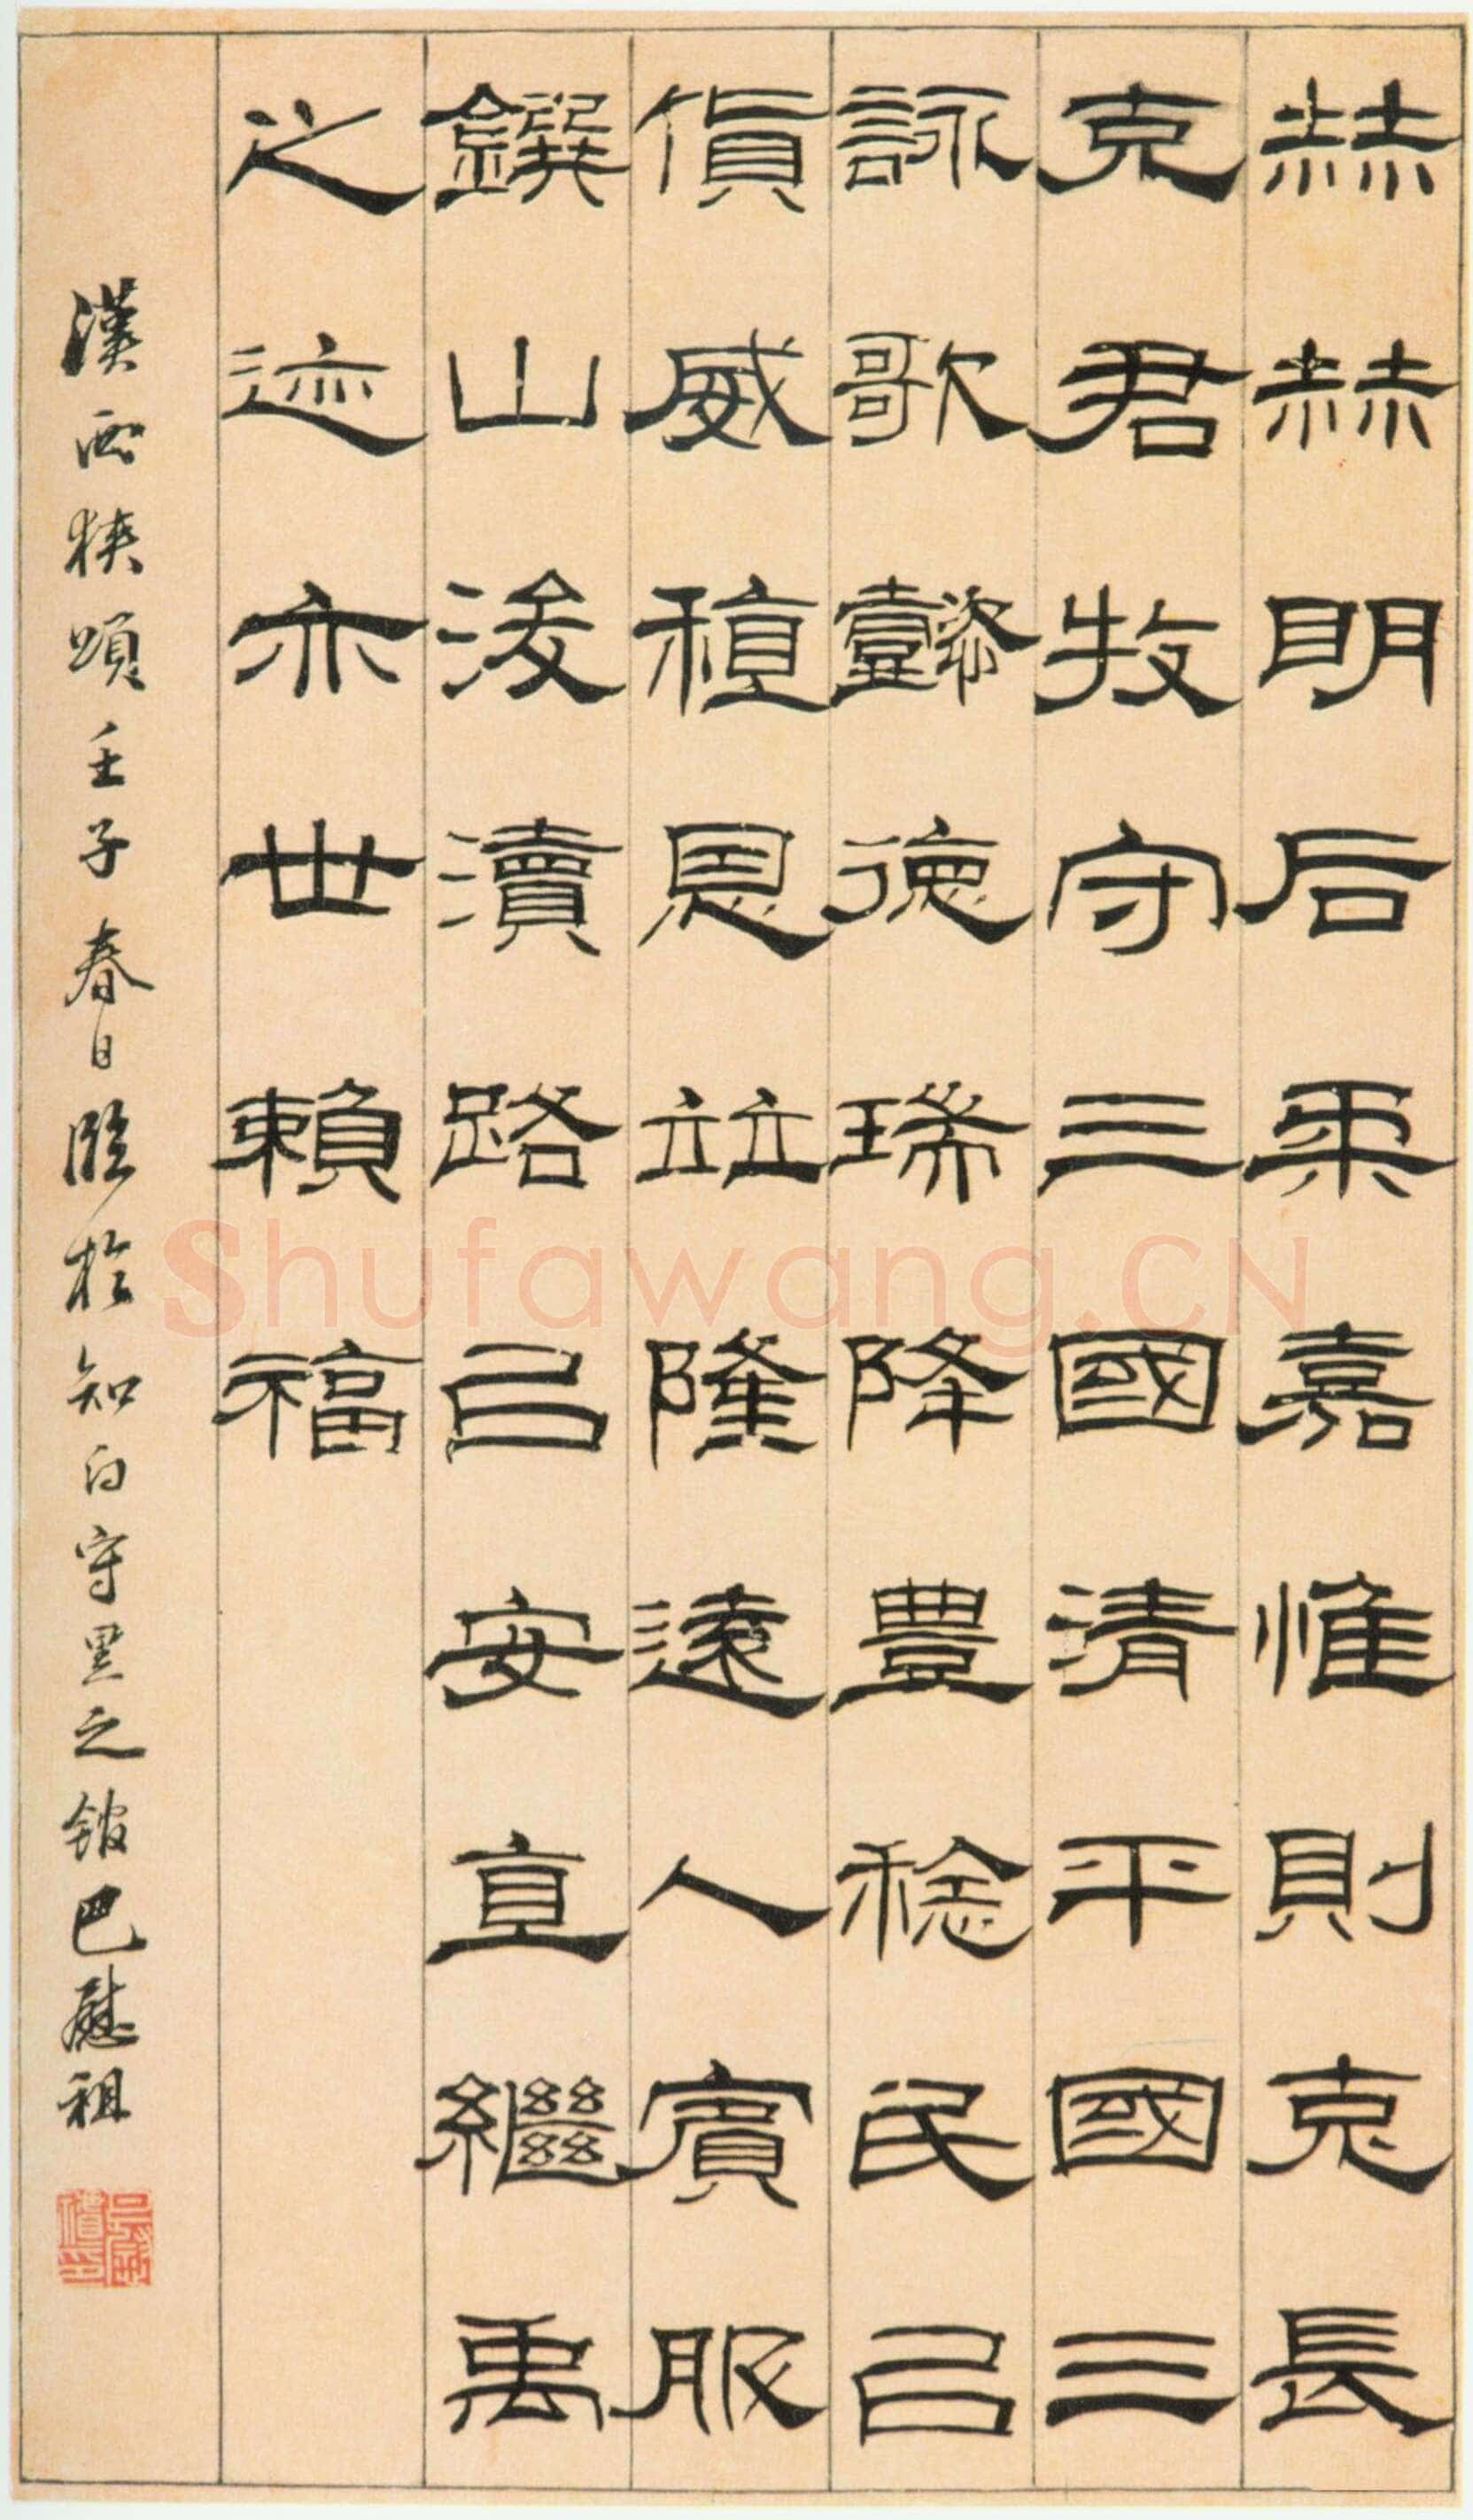 赫赫明后柔嘉惟則克長
克君牧守三國清平國三
詠歌懿德瑞降豐稔民㠯
貨威稙恩竝隆遠人賓服
鐉山浚瀆路㠯安直繼禹
之迹亦世賴福
漢西狹頌壬子春日臨於知白守黑之館巴慰祖
Shufawang.CN